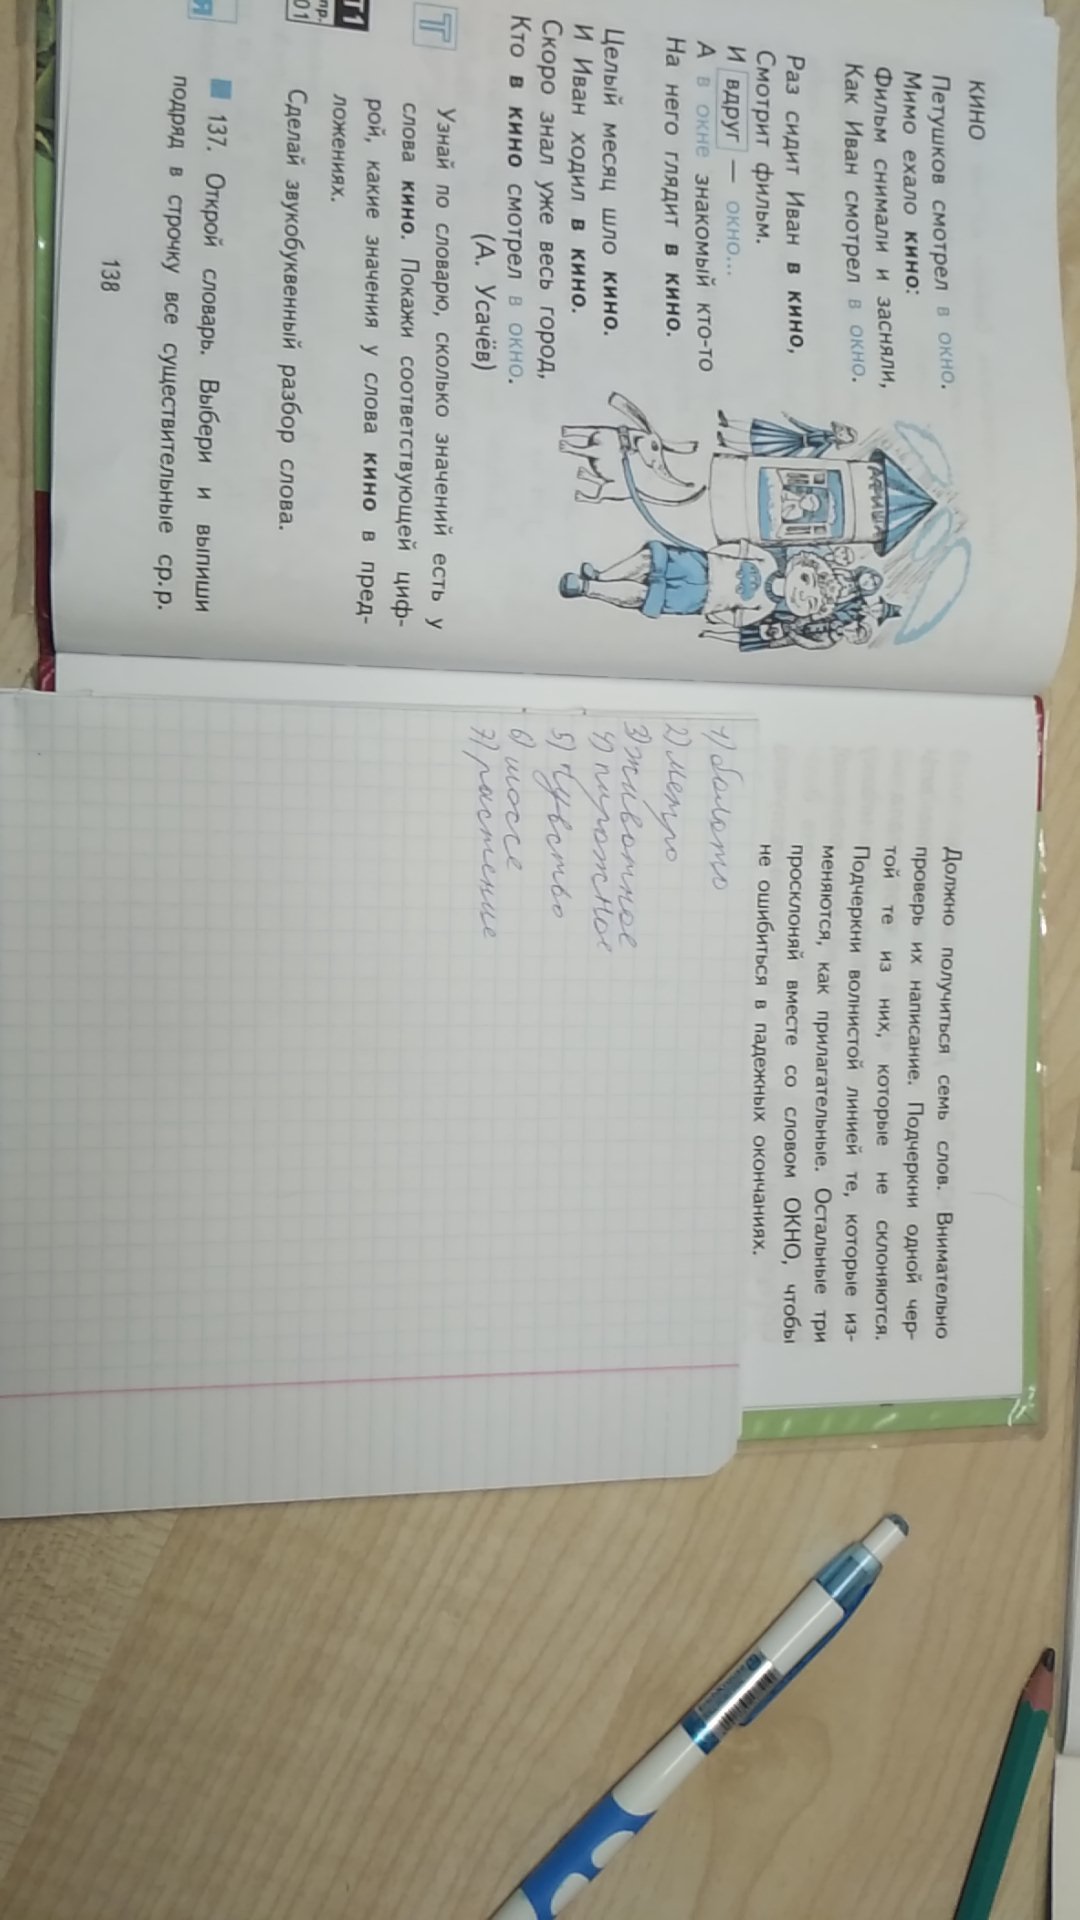 КИНО
Петушков смотрел в окно.
Мимо ехало кино:
Фильм снимали и засняли,
Как Иван смотрел в окно.
Раз сидит Иван в кино,
Смотрит фильм.
И вдруг — окно...
А в окне знакомый кто-то
На него глядит в кино.
Целый месяц шло кино.
И Иван ходил в кино.
Скоро знал уже весь город,
Кто в кино смотрел в окно.
(А. Усачёв)
АФИША
Т
Узнай по словарю, сколько значений есть у
слова кино. Покажи соответствующей циф-
рой, какие значения у слова кино в пред-
ложениях.
Т1
пр.
01
Сделай звукобуквенный разбор слова.
Я
137. Открой словарь. Выбери и выпиши
подряд в строчку все существительные ср.р.
138
Должно получиться семь слов. Внимательно
проверь их написание. Подчеркни одной чер-
той те из них, которые не склоняются.
Подчеркни волнистой линией те, которые из-
меняются, как прилагательные. Остальные три
просклоняй вместе со словом ОКНО, чтобы
не ошибиться в падежных окончаниях.
1) болото
2) метро
3) животное
4) пирожное
5) чувство
6) шоссе
7) растение